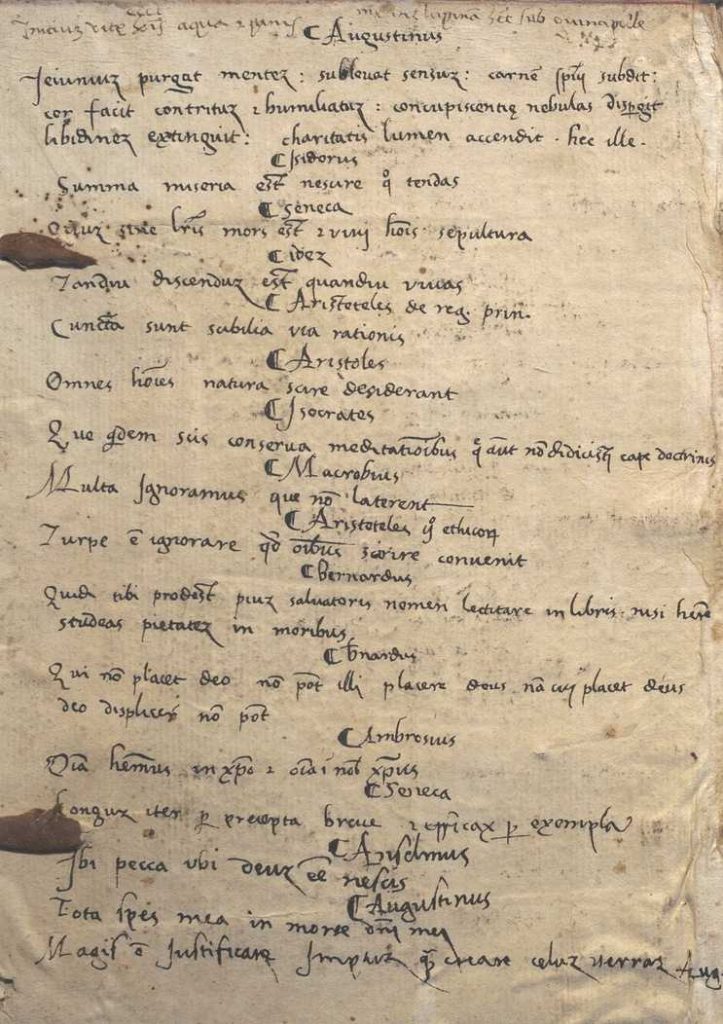 Initiuz vite ho[mi]s aqua et panis
¶ Augustinus
Jeiuniuz purgat mentez: sublevat sensuz: carnē spūi subdit:
cor facit contrituz ⁊ humiliatuz: concupiscentię nebulas disꝑgit
libidinez extinguit: charitatis lumen accendit. hec ille.
¶ Isidorus
Summa miseria est nescire qͦ tendas
¶ Seneca
Ociuz sine lrīs mors est ⁊ vivi hoīs sepultura
¶ idez
Tandiu discenduz est quandiu vivas
¶ Aristoteles de reg. prin.
Cuncta sunt scibilia via rationis
¶ Aristoles
Omnes hoīes natura scire desiderant
¶ Isocrates
Que qdem scis conserva meditatioībus qͤ aūt nō didicisti cape doctrinis
¶ Macrobius
Multa Ignoramus que nō laterent
¶ Aristoteles ethicoꝝ
Turpe ē ignorare qd̄ oībus scire convenit
¶ bernardus
Quid tibi prodest piuz salvatoris nomen lectitare in libris. nisi hēre
studeas pietatez in moribus
¶ b̄nardus
Qui nō placet deo nō pōt illi placere deus nā cui placet deus
deo displicere nō pōt
¶ Ambrosius
Oīa hēmus in xp̄o ⁊ oīa ī nob̄ xp̄us
¶ Seneca
Longuz iter ꝑ precepta breve ⁊ efficax ꝑ exempla
¶ Anselmus
Ibi pecca ubi deuz eē nescis
¶ Augustinus
Tota spes mea in morte dn̄i mei
Magis ē Justificare Impiuz quā creare celuz ⁊ terraz Aug.